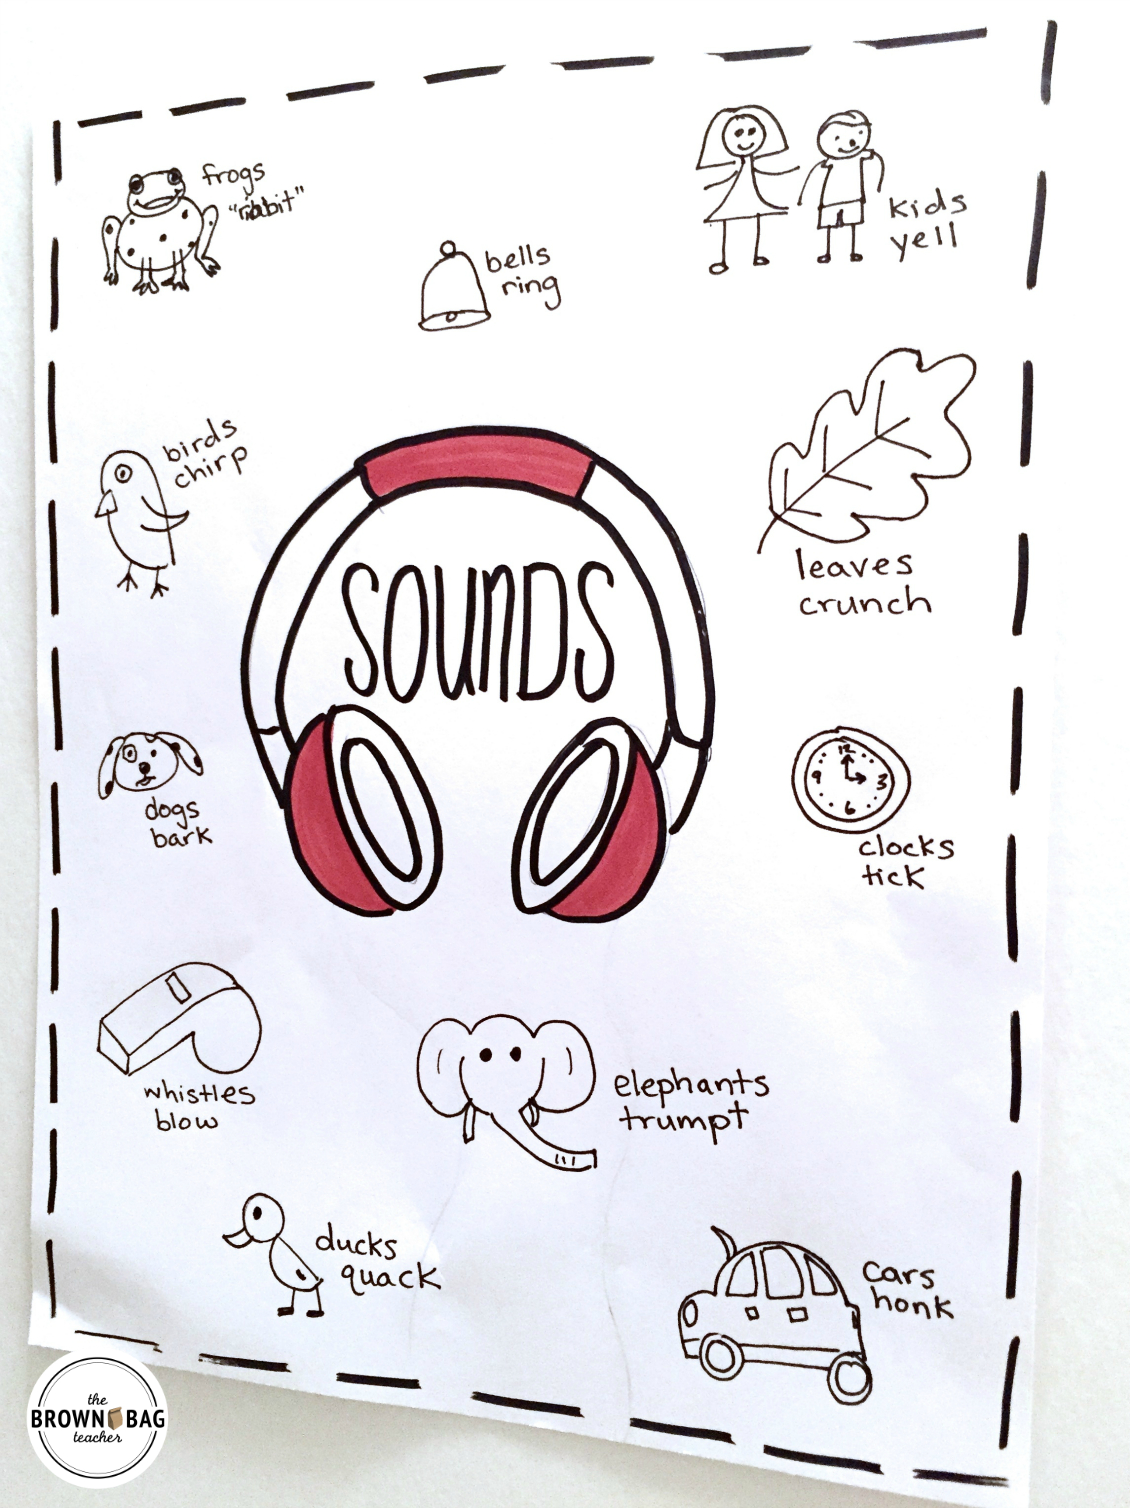 frogs
"ribbit"
bells
ring
kids
yell
birds
chirp
leaves
crunch
SOUNDS
dogs
bark
12
9
3
6
clocks
tick
whistles
blow
elephants
trumpt
ducks
quack
cars
honk
the
BROWN BAG
teacher